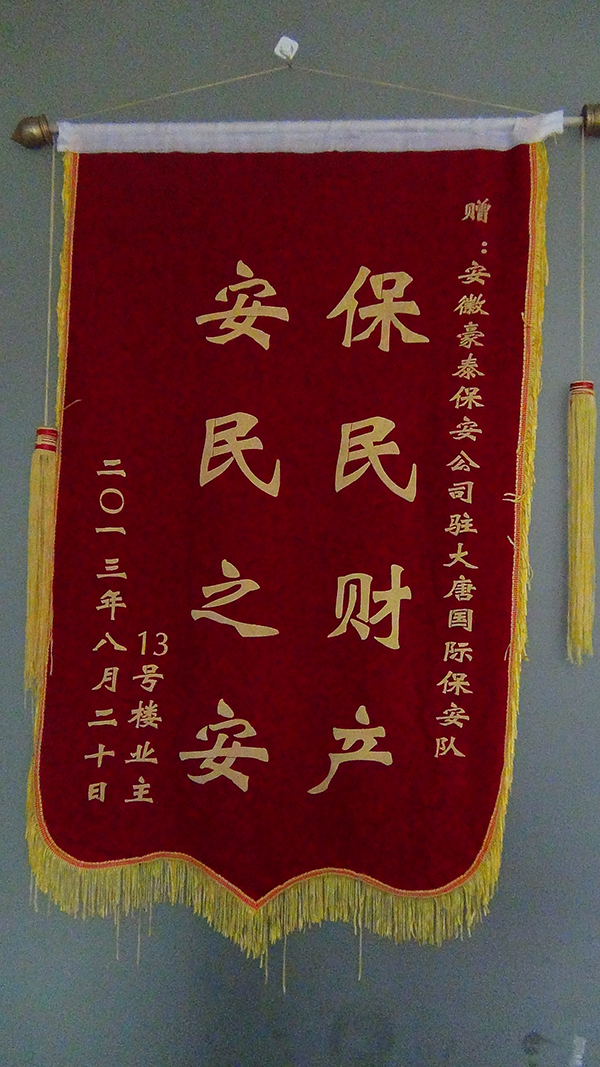 赠：安徽豪泰保安公司驻大唐国际保安队
保民财产
安民之安
13号楼业主
二〇一三年八月二十日